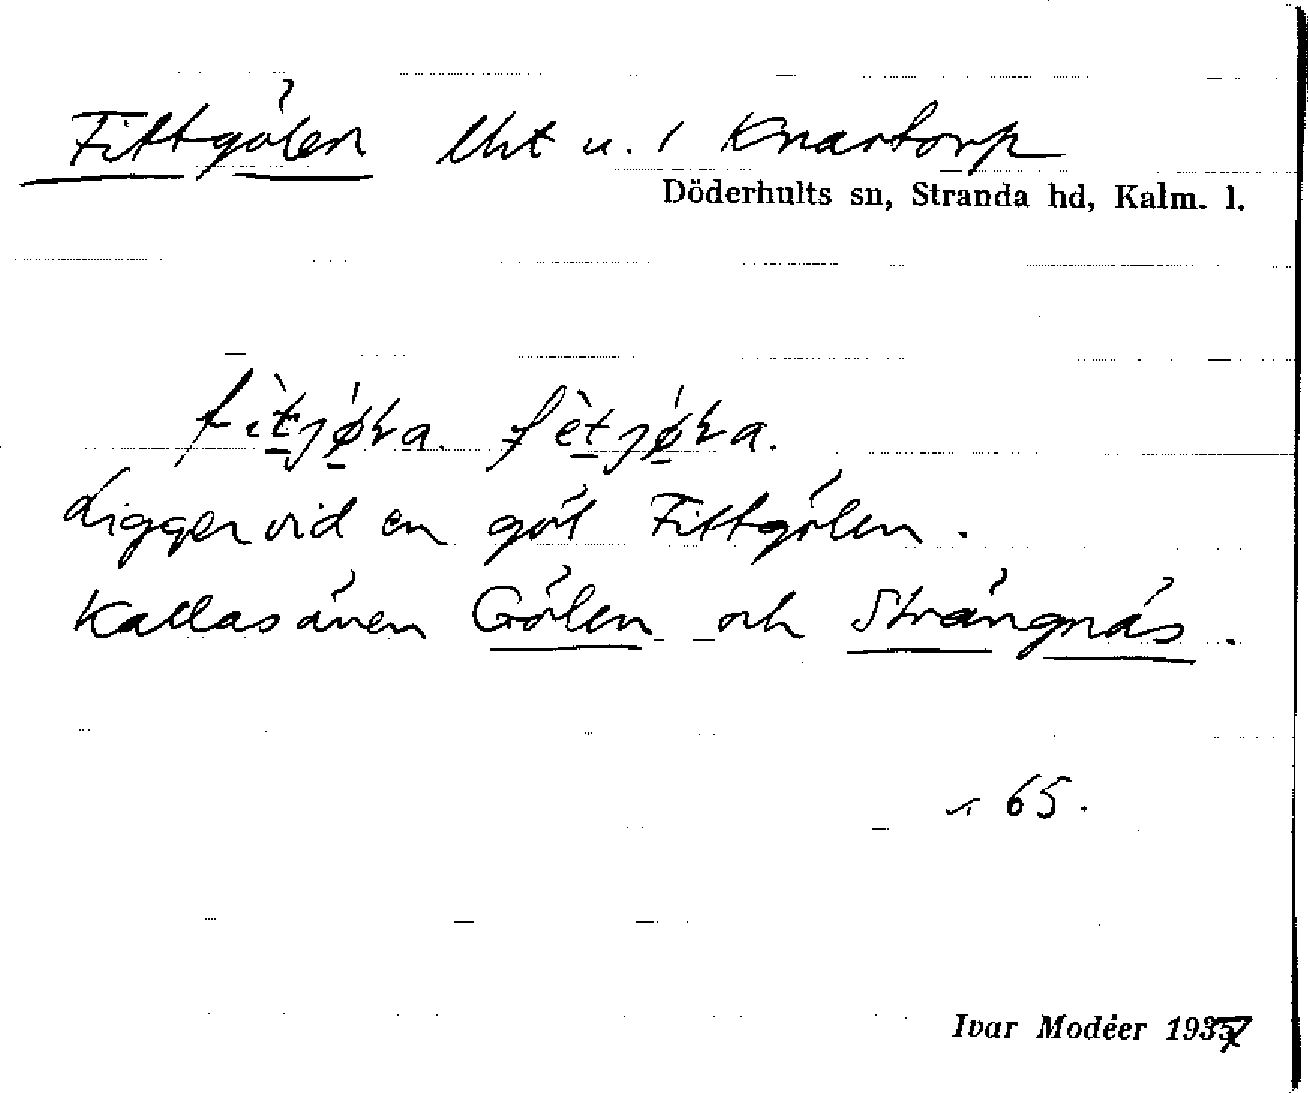 Fittgölen lht u. 1 Knartorp
Döderhults sn, Stranda hd, Kalm. l.
Ligger vid en göl Fittgölen.
Kallas även Gölen och Strängnäs.
65.
Ivar Modéer 1937